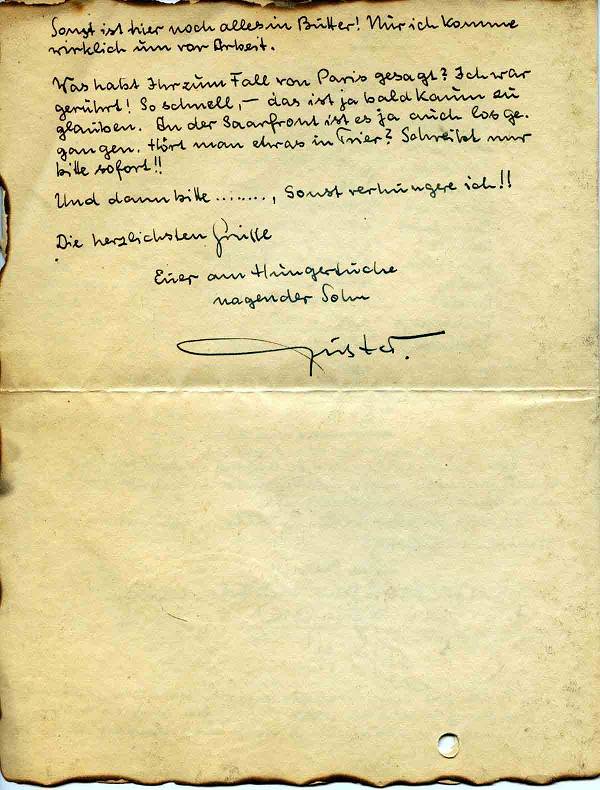 Sonst ist hier noch alles in Butter! Nur ich komme
wirklich um vor Arbeit.
Was habt Ihr zum Fall von Paris gesagt? Ich war
gerührt! So schnell, – das ist ja bald kaum zu
glauben. An der Saarfront ist es ja auch losge-
gangen. Hört man etwas in Trier? Schreibt mir
bitte sofort!!
Und dann bitte ........, Sonst verhungere ich!!
Die herzlichsten Grüsse
Euer am Hungertuche
nagender Sohn